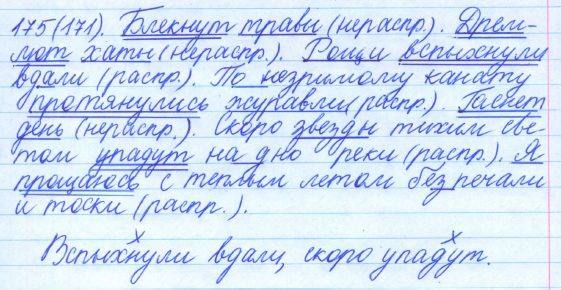 175(171). Блекнут травы (нераспр.). Дрем-
лют хаты (нераспр.). Рощи вспыхнули
вдали (распр.). По незримому канату
протянулись журавли (распр.). Гаснет
день (нераспр.). Скоро звезды тихим све-
том упадут на дно реки (распр.). Я
прощаюсь с теплым летом без печали
и тоски (распр.).
Вспыхнули вдали, скоро упадут.